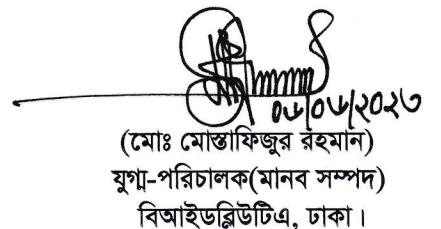 ০৬/০৬/২০২৩
(মোঃ মোস্তাফিজুর রহমান)
যুগ্ম-পরিচালক(মানব সম্পদ)
বিআইডব্লিউটিএ, ঢাকা।